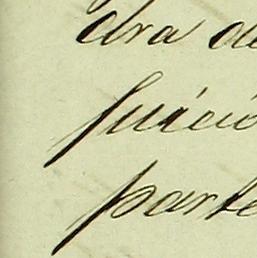 dra de
juició
parte